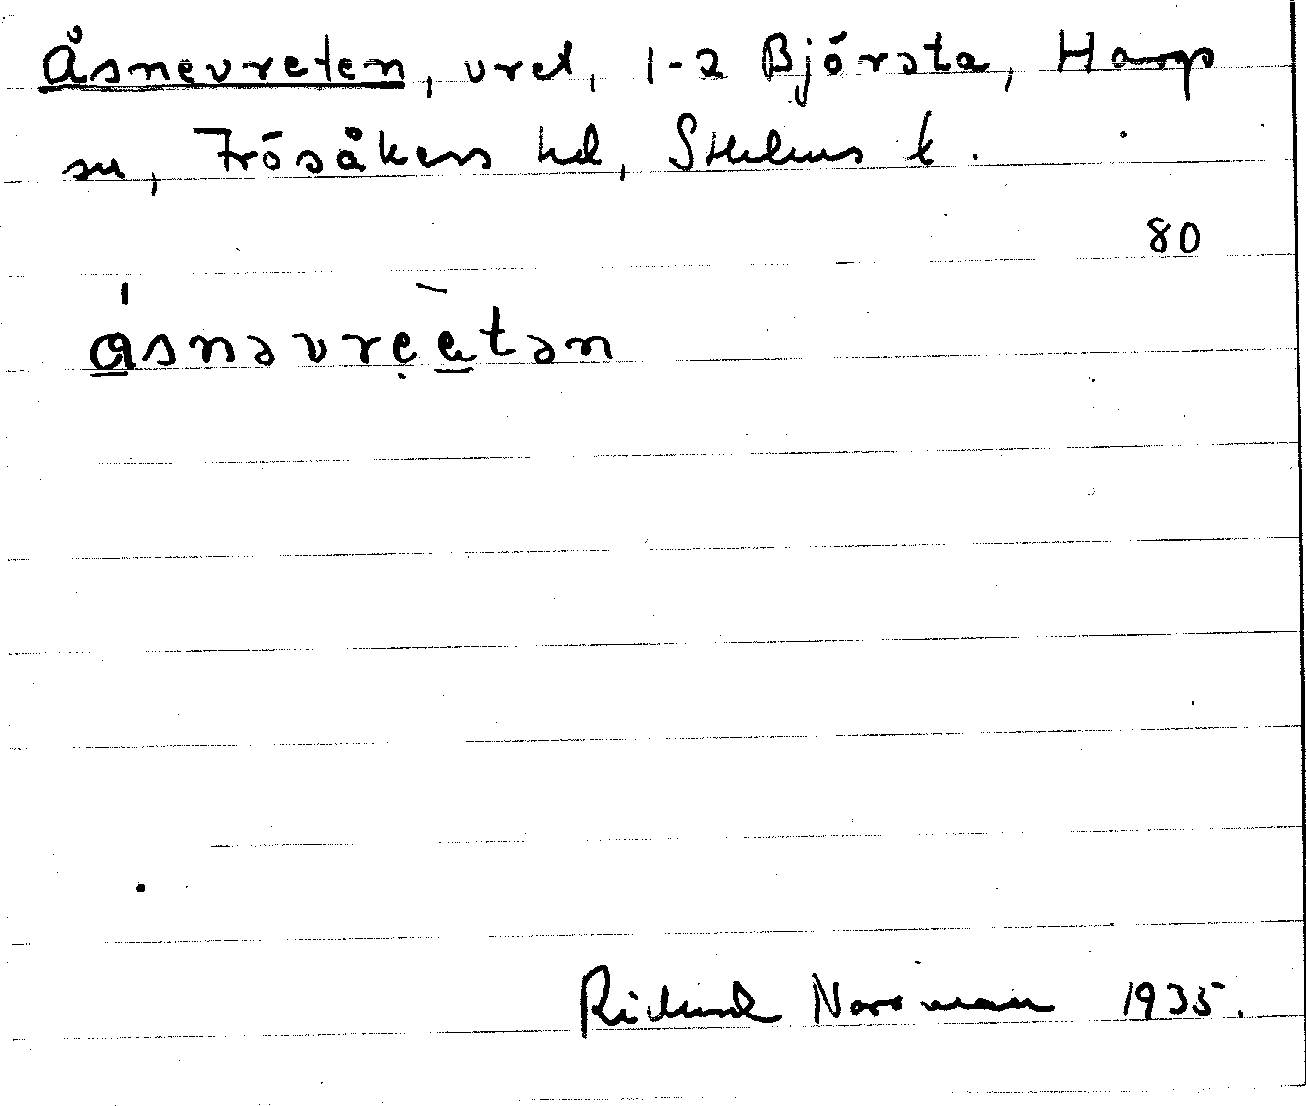 Åsnevreten, vret, 1-2 Björsta, Hargs
sn, Frösåkers hd, Sthlms l.
80
ásnəvrẹètən
Richard Norrman 1935.